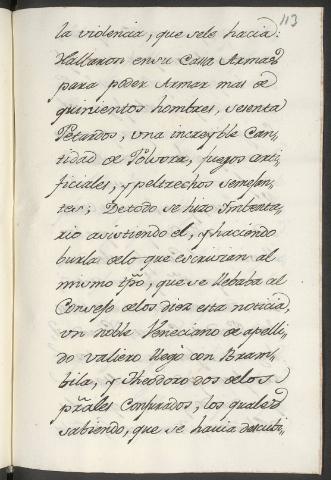 113
la violencia, que sele hacia:
Hallaron en su Casa Armas
para poder Armar mas de
quinientos hombres, sesenta
Petardos, una increyble Can-
tidad de Polvora, fuegos arti-
ficiales, y peltrechos semejan-
tes; De todo se hizo Imbenta-
rio asistiendo el, y haciendo
burla delo que escrivian al
mismo tpõ, que se llebaba al
Consejo delos diez esta noticia,
un noble Veneciano de apelli-
do valiero llegò con Bram-
bila, y Theodoro dos delos
prãles Conjurados, los quales
sabiendo, que se havia descubi-